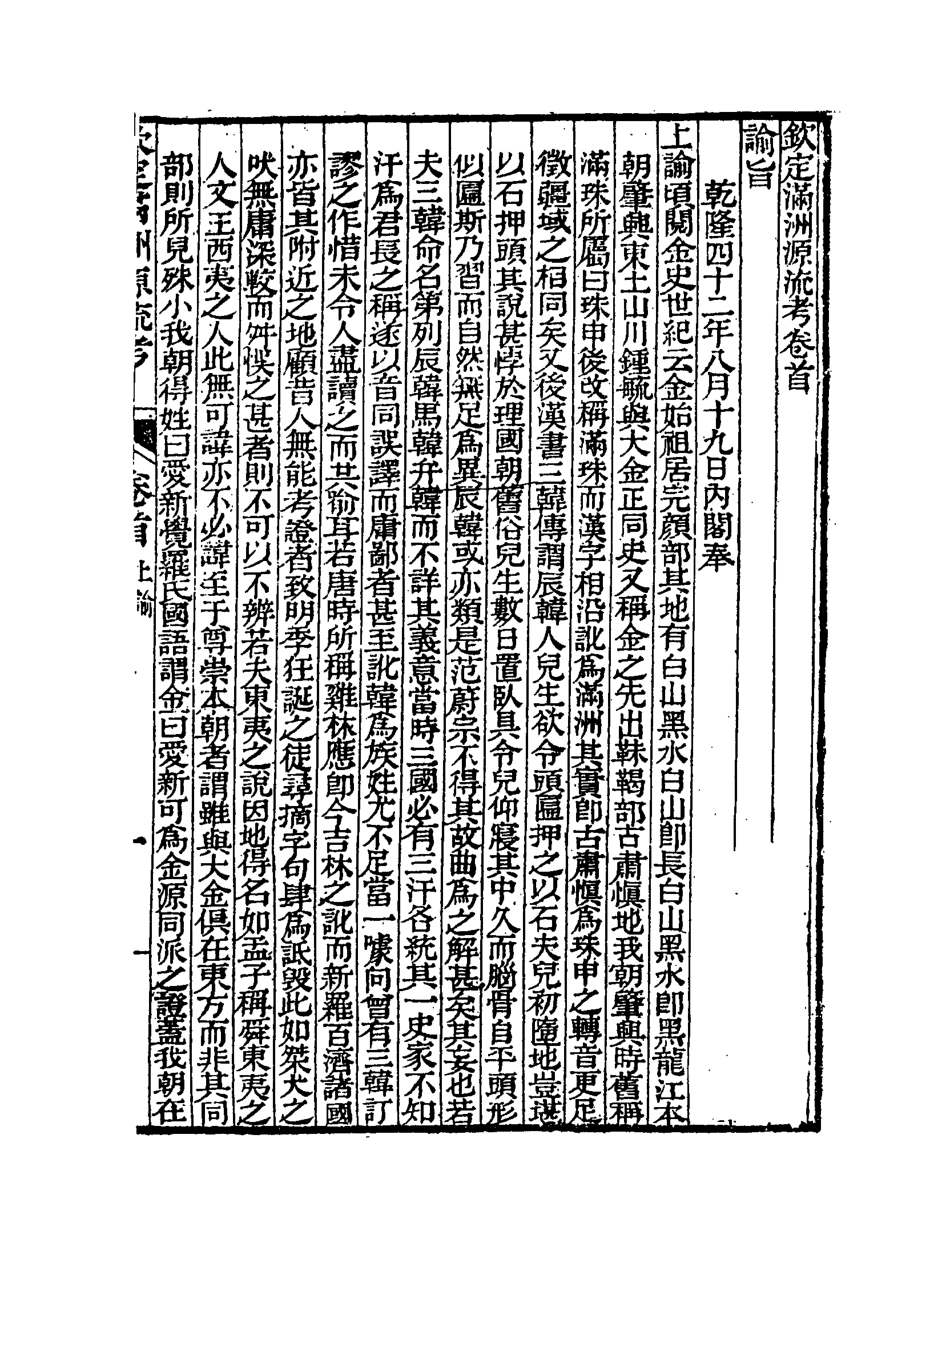 欽定滿洲源流考卷首
諭旨
乾隆四十二年八月十九日內閣奉
上諭頃閱金史世紀云金始祖居完顏部其地有白山黑水白山卽長白山黑水卽黑龍江本
朝肇興東土山川鍾毓與大金正同史又稱金之先出靺鞨部古肅愼地我朝肇興時舊稱
滿珠所屬曰珠申後改稱滿珠而漢字相沿訛爲滿洲其實卽古肅愼爲珠申之轉音更足
徵疆域之相同矣又後漢書三韓傳謂辰韓人兒生欲令頭匾押之以石夫兒初墮地豈堪
以石押頭其說甚悖於理國朝舊俗兒生數日置臥具令兒仰寢其中久而腦骨自平頭形
似匾斯乃習而自然無足爲異辰韓或亦類是范蔚宗不得其故曲爲之解甚矣其妄也若
夫三韓命名第列辰韓馬韓弁韓而不詳其義意當時三國必有三汗各統其一史家不知
汗爲君長之稱遂以音同誤譯而庸鄙者甚至訛韓爲族姓尤不足當一噱向曾有三韓訂
謬之作惜未令人盡讀之而共喻耳若唐時所稱雞林應卽今吉林之訛而新羅百濟諸國
亦皆其附近之地顧昔人無能考證者致明季狂誕之徒尋摘字句肆爲詆毀此如桀犬之
吠無庸深較而舛悞之甚者則不可以不辨若夫東夷之說因地得名如孟子稱舜東夷之
人文王西夷之人此無可諱亦不必諱至于尊崇本朝者謂雖與大金俱在東方而非其同
部則所見殊小我朝得姓曰愛新覺羅氏國語謂金曰愛新可爲金源同派之證蓋我朝在
欽定滿洲源流考 卷首 上諭